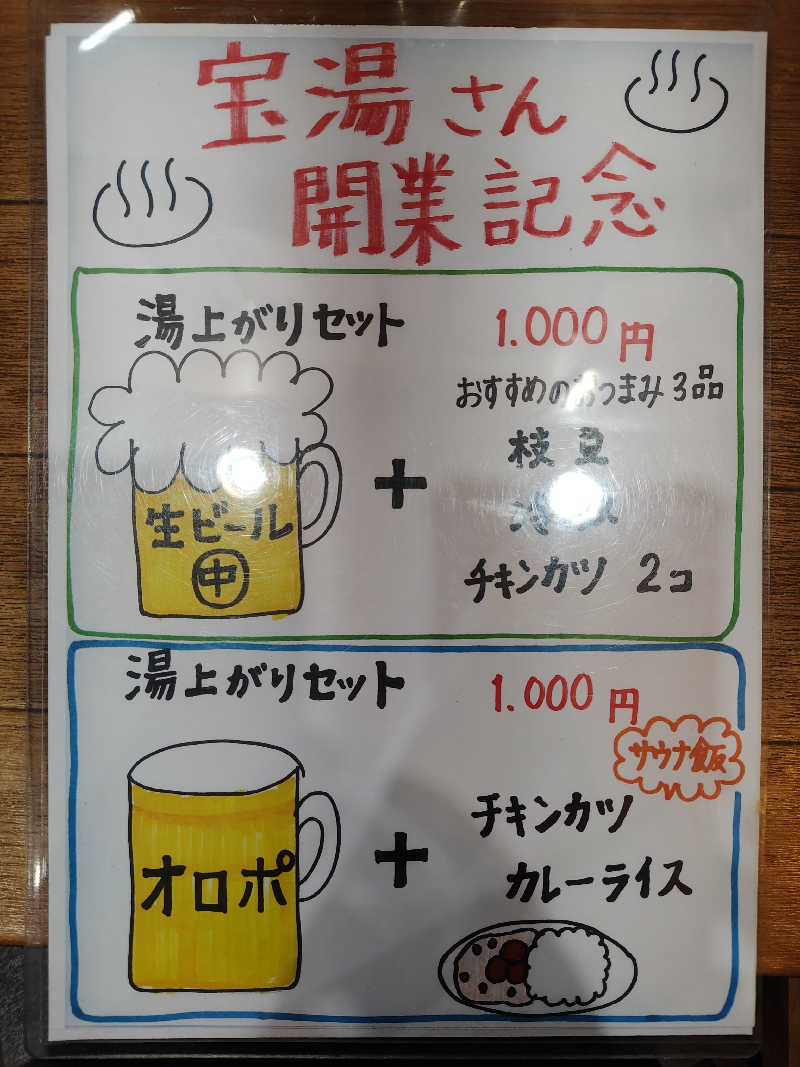 宝湯さん
開業記念
湯上がりセット 1.000円
おすすめのおつまみ3品
枝豆
チキンカツ 2コ
+
生ビール
中
湯上がりセット 1.000円
サウナ飯
チキンカツ
カレーライス
+
オロポ